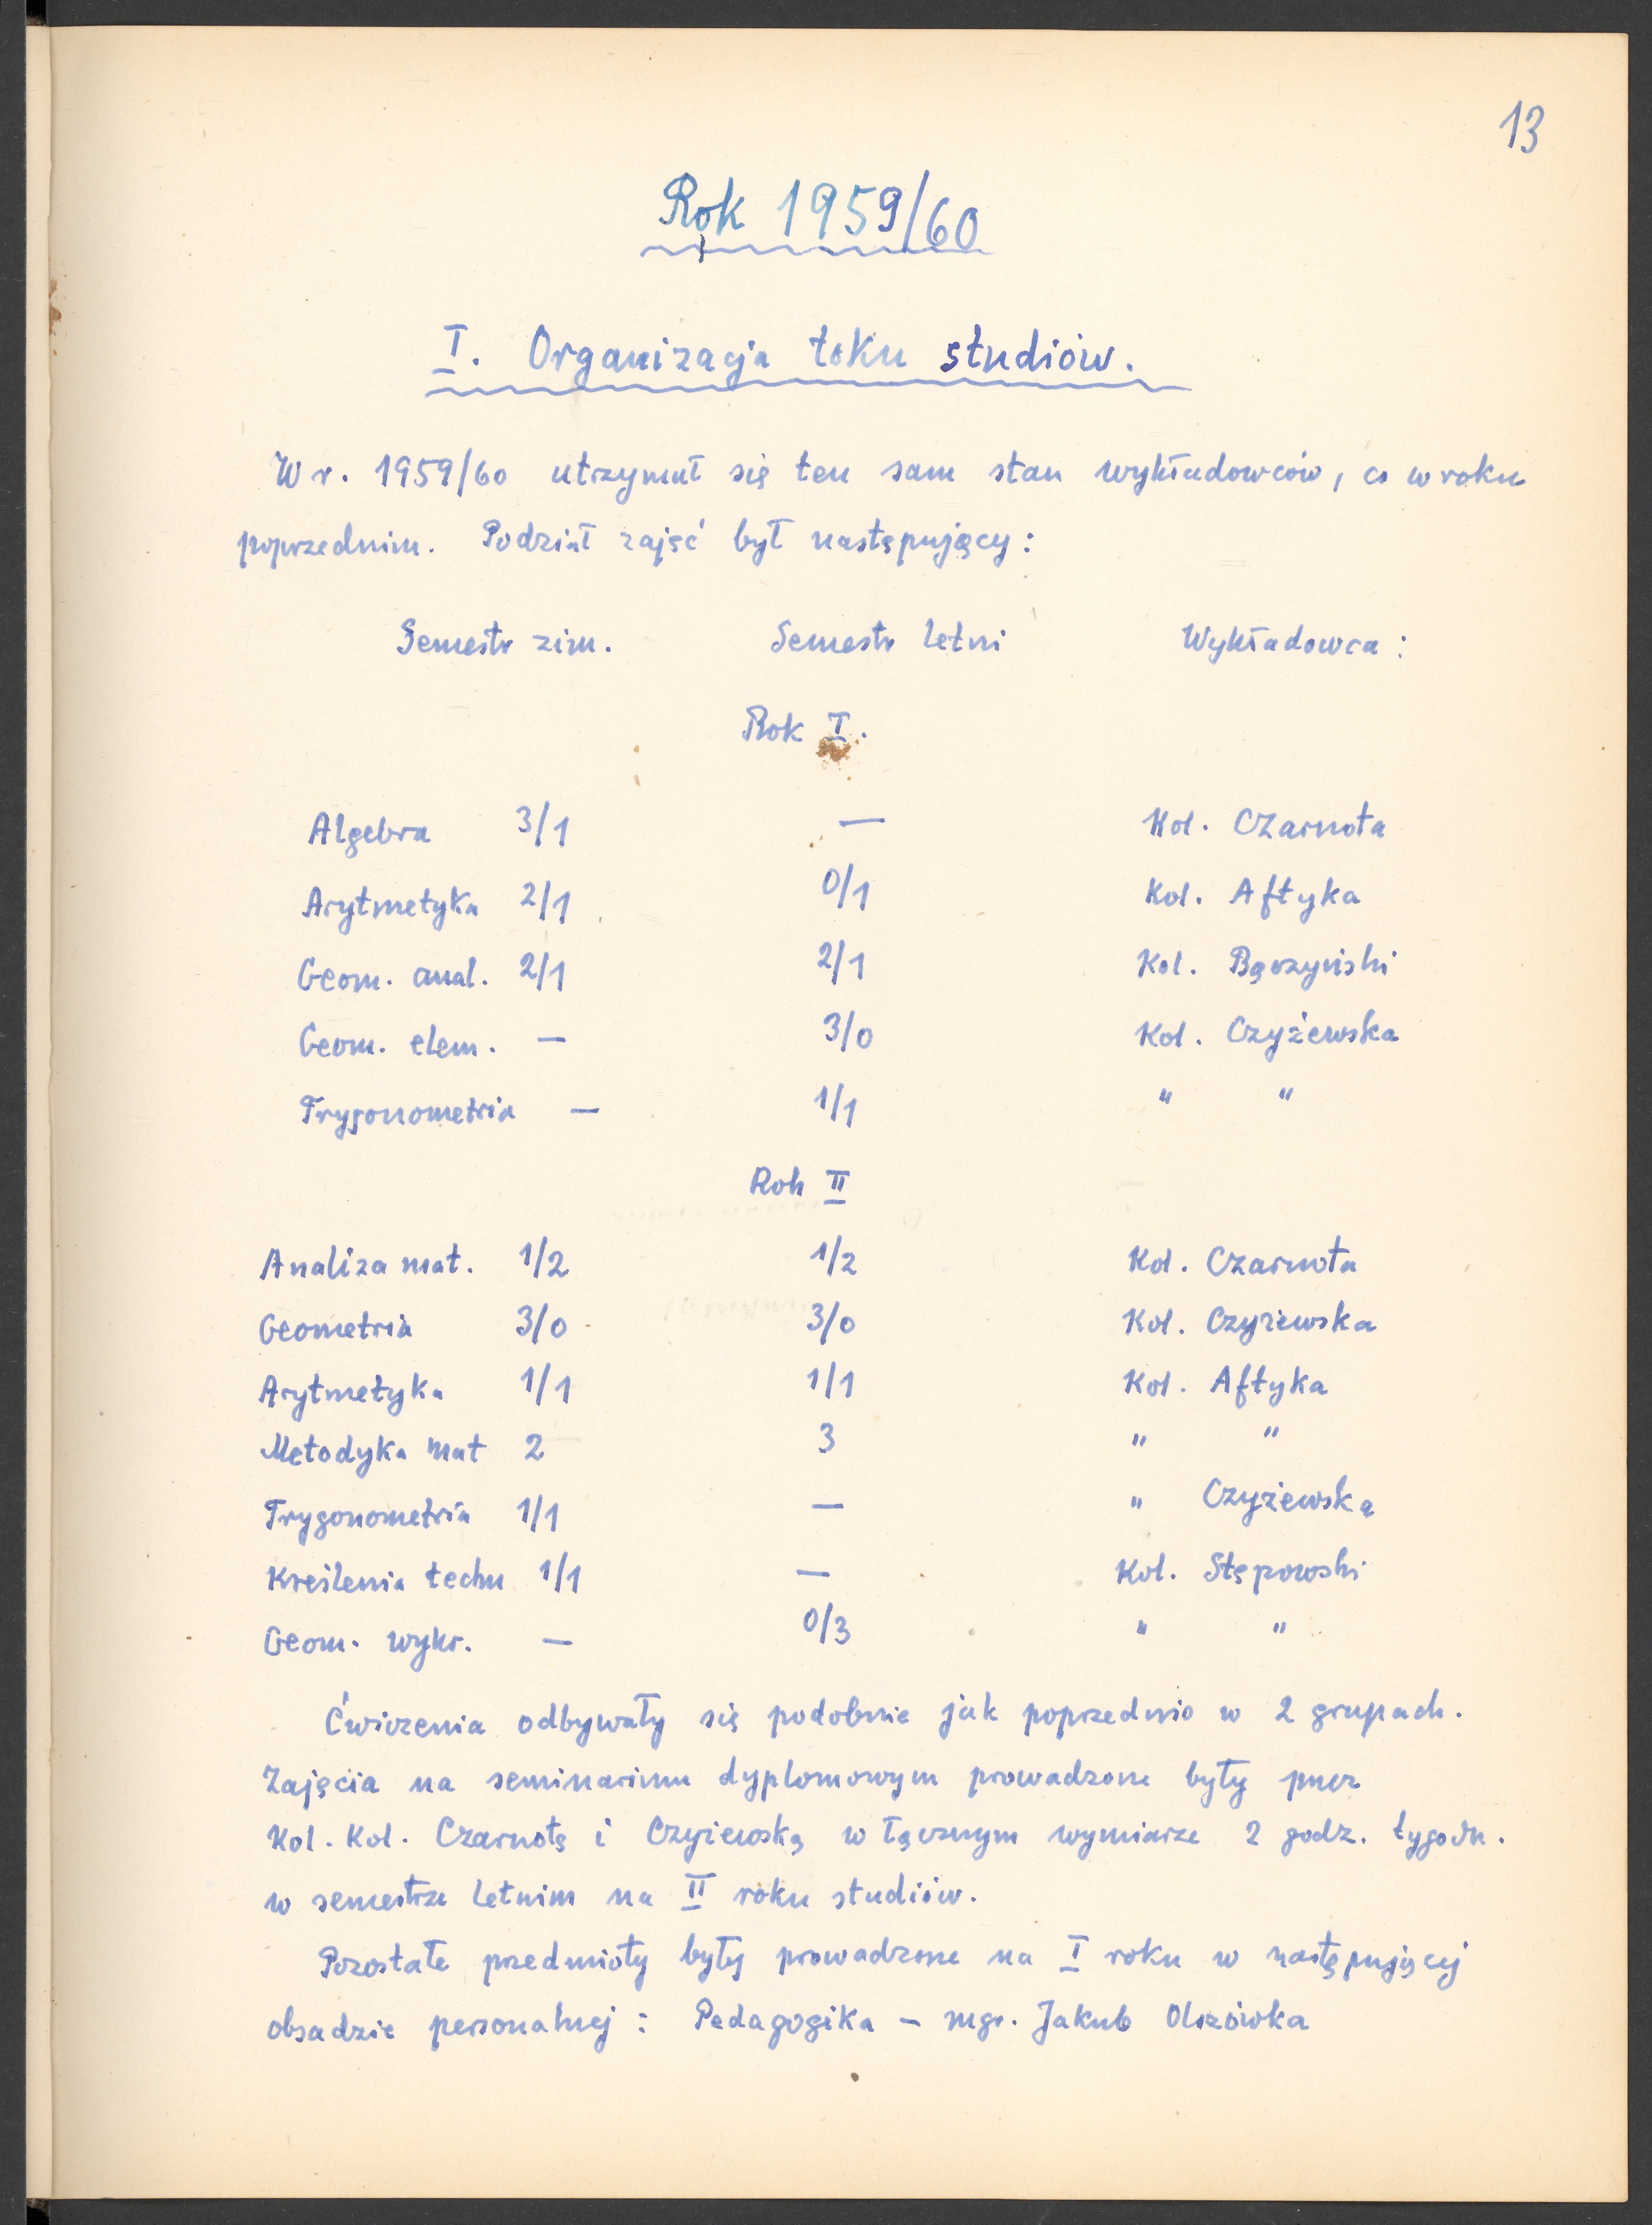 13
Rok 1959/60
I. Organizacja toku studiów.
W r. 1959/60 utrzymał się ten sam stan wykładowców, co w roku
poprzednim. Podział zajęć był następujący:
Semestr zim. Semestr letni Wykładowca:
Rok I.
Algebra 3/1 — Kol. Czarnota
Arytmetyka 2/1 0/1 Kol. Aftyka
Geom. anal. 2/1 2/1 Kol. Bączyński
Geom. elem. — 3/0 Kol. Czyżewska
Trygonometria — 1/1 " "
Rok II
Analiza mat. 1/2 1/2 Kol. Czarnota
Geometria 3/0 3/0 Kol. Czyżewska
Arytmetyka 1/1 1/1 Kol. Aftyka
Metodyka mat 2 3 " "
Trygonometria 1/1 — " Czyżewska
Kreślenia techn 1/1 — Kol. Stępowski
Geom. wykr. — 0/3 " "
Ćwiczenia odbywały się podobnie jak poprzednio w 2 grupach.
Zajęcia na seminarium dyplomowym prowadzone były przez
Kol. Kol. Czarnotę i Czyżewską w łącznym wymiarze 2 godz. tygodn.
w semestrze letnim na II roku studiów.
Pozostałe przedmioty były prowadzone na I roku w następującej
obsadzie personalnej: Pedagogika – mgr. Jakub Olszówka